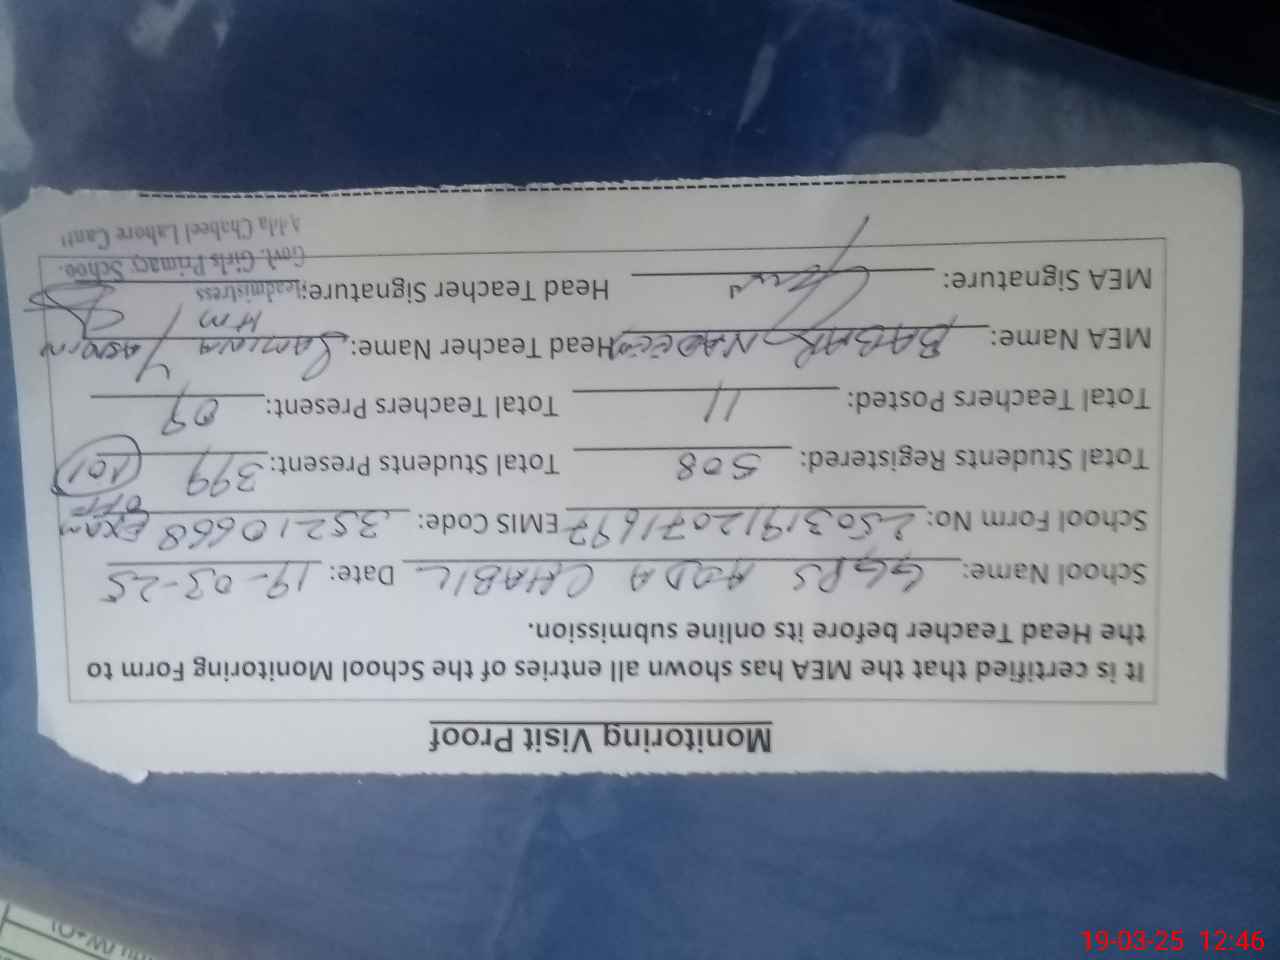 Monitoring Visit Proof
It is certified that the MEA has shown all entries of the School Monitoring Form to
the Head Teacher before its online submission.
School Name: GGPS ADDA CHABIL Date: 19-03-25
School Form No: 25031912071697 EMIS Code: 35210668 EXAM OFF
Total Students Registered: 508 Total Students Present: 399 101
Total Teachers Posted: 11 Total Teachers Present: 09
MEA Name: BABAR NADEEM Head Teacher Name: Samina Yasmin
HM
MEA Signature: Head Teacher Signature:
Headmistress
Govt. Girls Primary School
Adda Chabeel Lahore Cantt
19-03-25 12:46